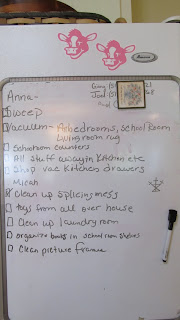 Anna-
Sweep
Vacuum - bedrooms, school room
living room rug
Schoolroom counters
All stuff away in Kitchen etc
Shop vac Kitchen drawers
Micah
Clean up splicing mess
toys from all over house
Clean up laundry room
organize books in school room shelves
Clean picture frame